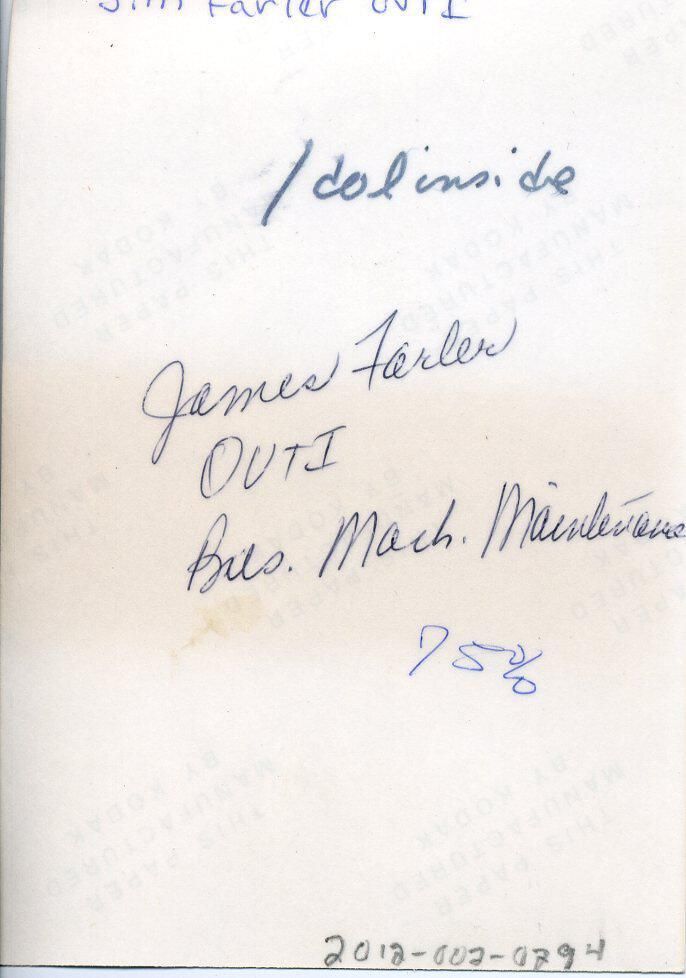 Jim Farler OVTI
1 col inside
James Farler
OVTI
Bus. Mach. Maintenance
75%
2012-002-0794
THIS PAPER
MANUFACTURED
BY KODAK